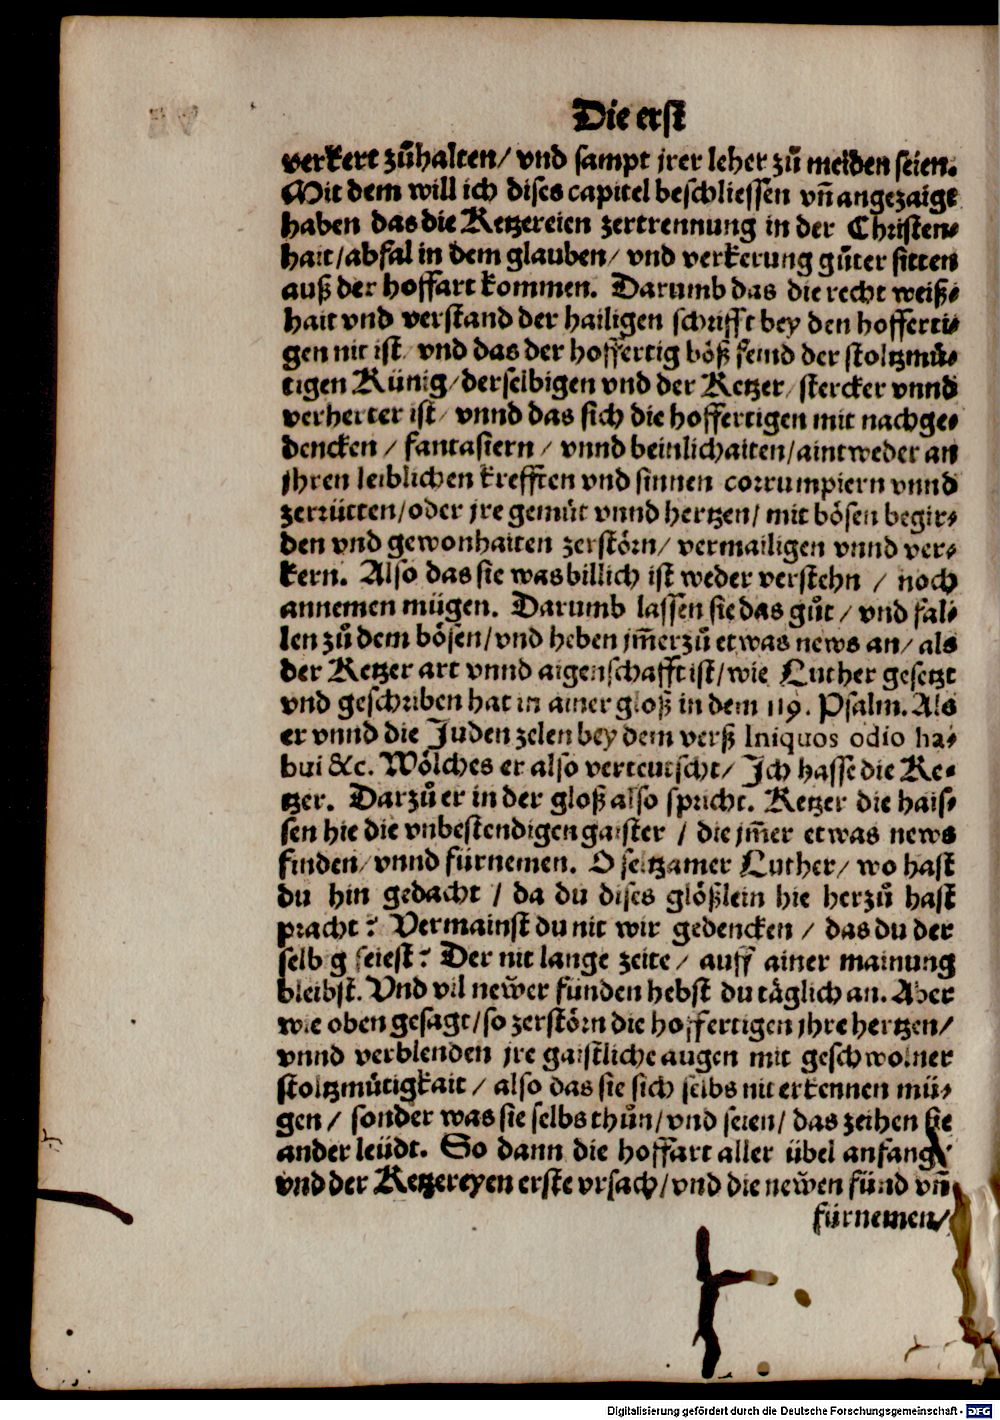 Die erst
verkert zůhalten/ vnd sampt jrer leher zů meiden seien.
Mit dem will ich dises capitel beschliessen vñ angezaigt
haben das die Ketzereien zertrennung in der Christen-
hait/abfal in dem glauben/ vnd verkerung gůter sitten
auß der hoffart kommen. Darumb das die recht weiß-
hait vnd verstand der hailigen schrifft bey den hofferti-
gen nit ist/ vnd das der hoffertig böß feind der stoltzmů-
tigen Künig/derselbigen vnd der Ketzer/ stercker vnnd
verherter ist/ vnnd das sich die hoffertigen mit nachge-
dencken / fantasiern / vnnd beinlichaiten/aintweder an
jhren leiblichen krefften vnd sinnen corrumpiern vnnd
zerrütten/oder jre gemůt vnnd hertzen/ mit bösen begir-
den vnd gewonhaiten zerstörn/ vermailigen vnnd ver-
kern. Also das sie was billich ist weder verstehn / noch
annemen mügen. Darumb lassen sie das gůt / vnd fal-
len zů dem bösen/vnd heben jm̃erzů etwas news an/ als
der Ketzer art vnnd aigenschafft ist/wie Luther gesetzt
vnd geschriben hat in ainer gloß in dem 119. Psalm. Als
er vnnd die Juden zelen bey dem verß Iniquos odio ha-
bui &c. Wölches er also verteutscht/ Ich hasse die Ke-
tzer. Darzů er in der gloß also spricht. Ketzer die hais-
sen hie die vnbestendigen gaister / die jm̃er etwas news
finden/ vnnd fürnemen. O seltzamer Luther/ wo hast
du hin gedacht / da du dises glößlein hie herzů hast
pracht? Vermainst du nit wir gedencken / das du der
selbig seiest? Der nit lange zeite/ auff ainer mainung
bleibst. Vnd vil new̃er fünden hebst du täglich an. Aber
wie oben gesagt/so zerstörn die hoffertigen jhre hertzen/
vnnd verblenden jre gaistliche augen mit geschwolner
stoltzmůtigkait / also das sie sich selbs nit erkennen mü-
gen/ sonder was sie selbs thůn/vnd seien/ das zeihen sie
ander leüdt. So dann die hoffart aller übel anfang/
vnd der Ketzereyen erste vrsach/vnd die new̃en fünd vñ
fürnemen/
Digitalisierung gefördert durch die Deutsche Forschungsgemeinschaft - DFG